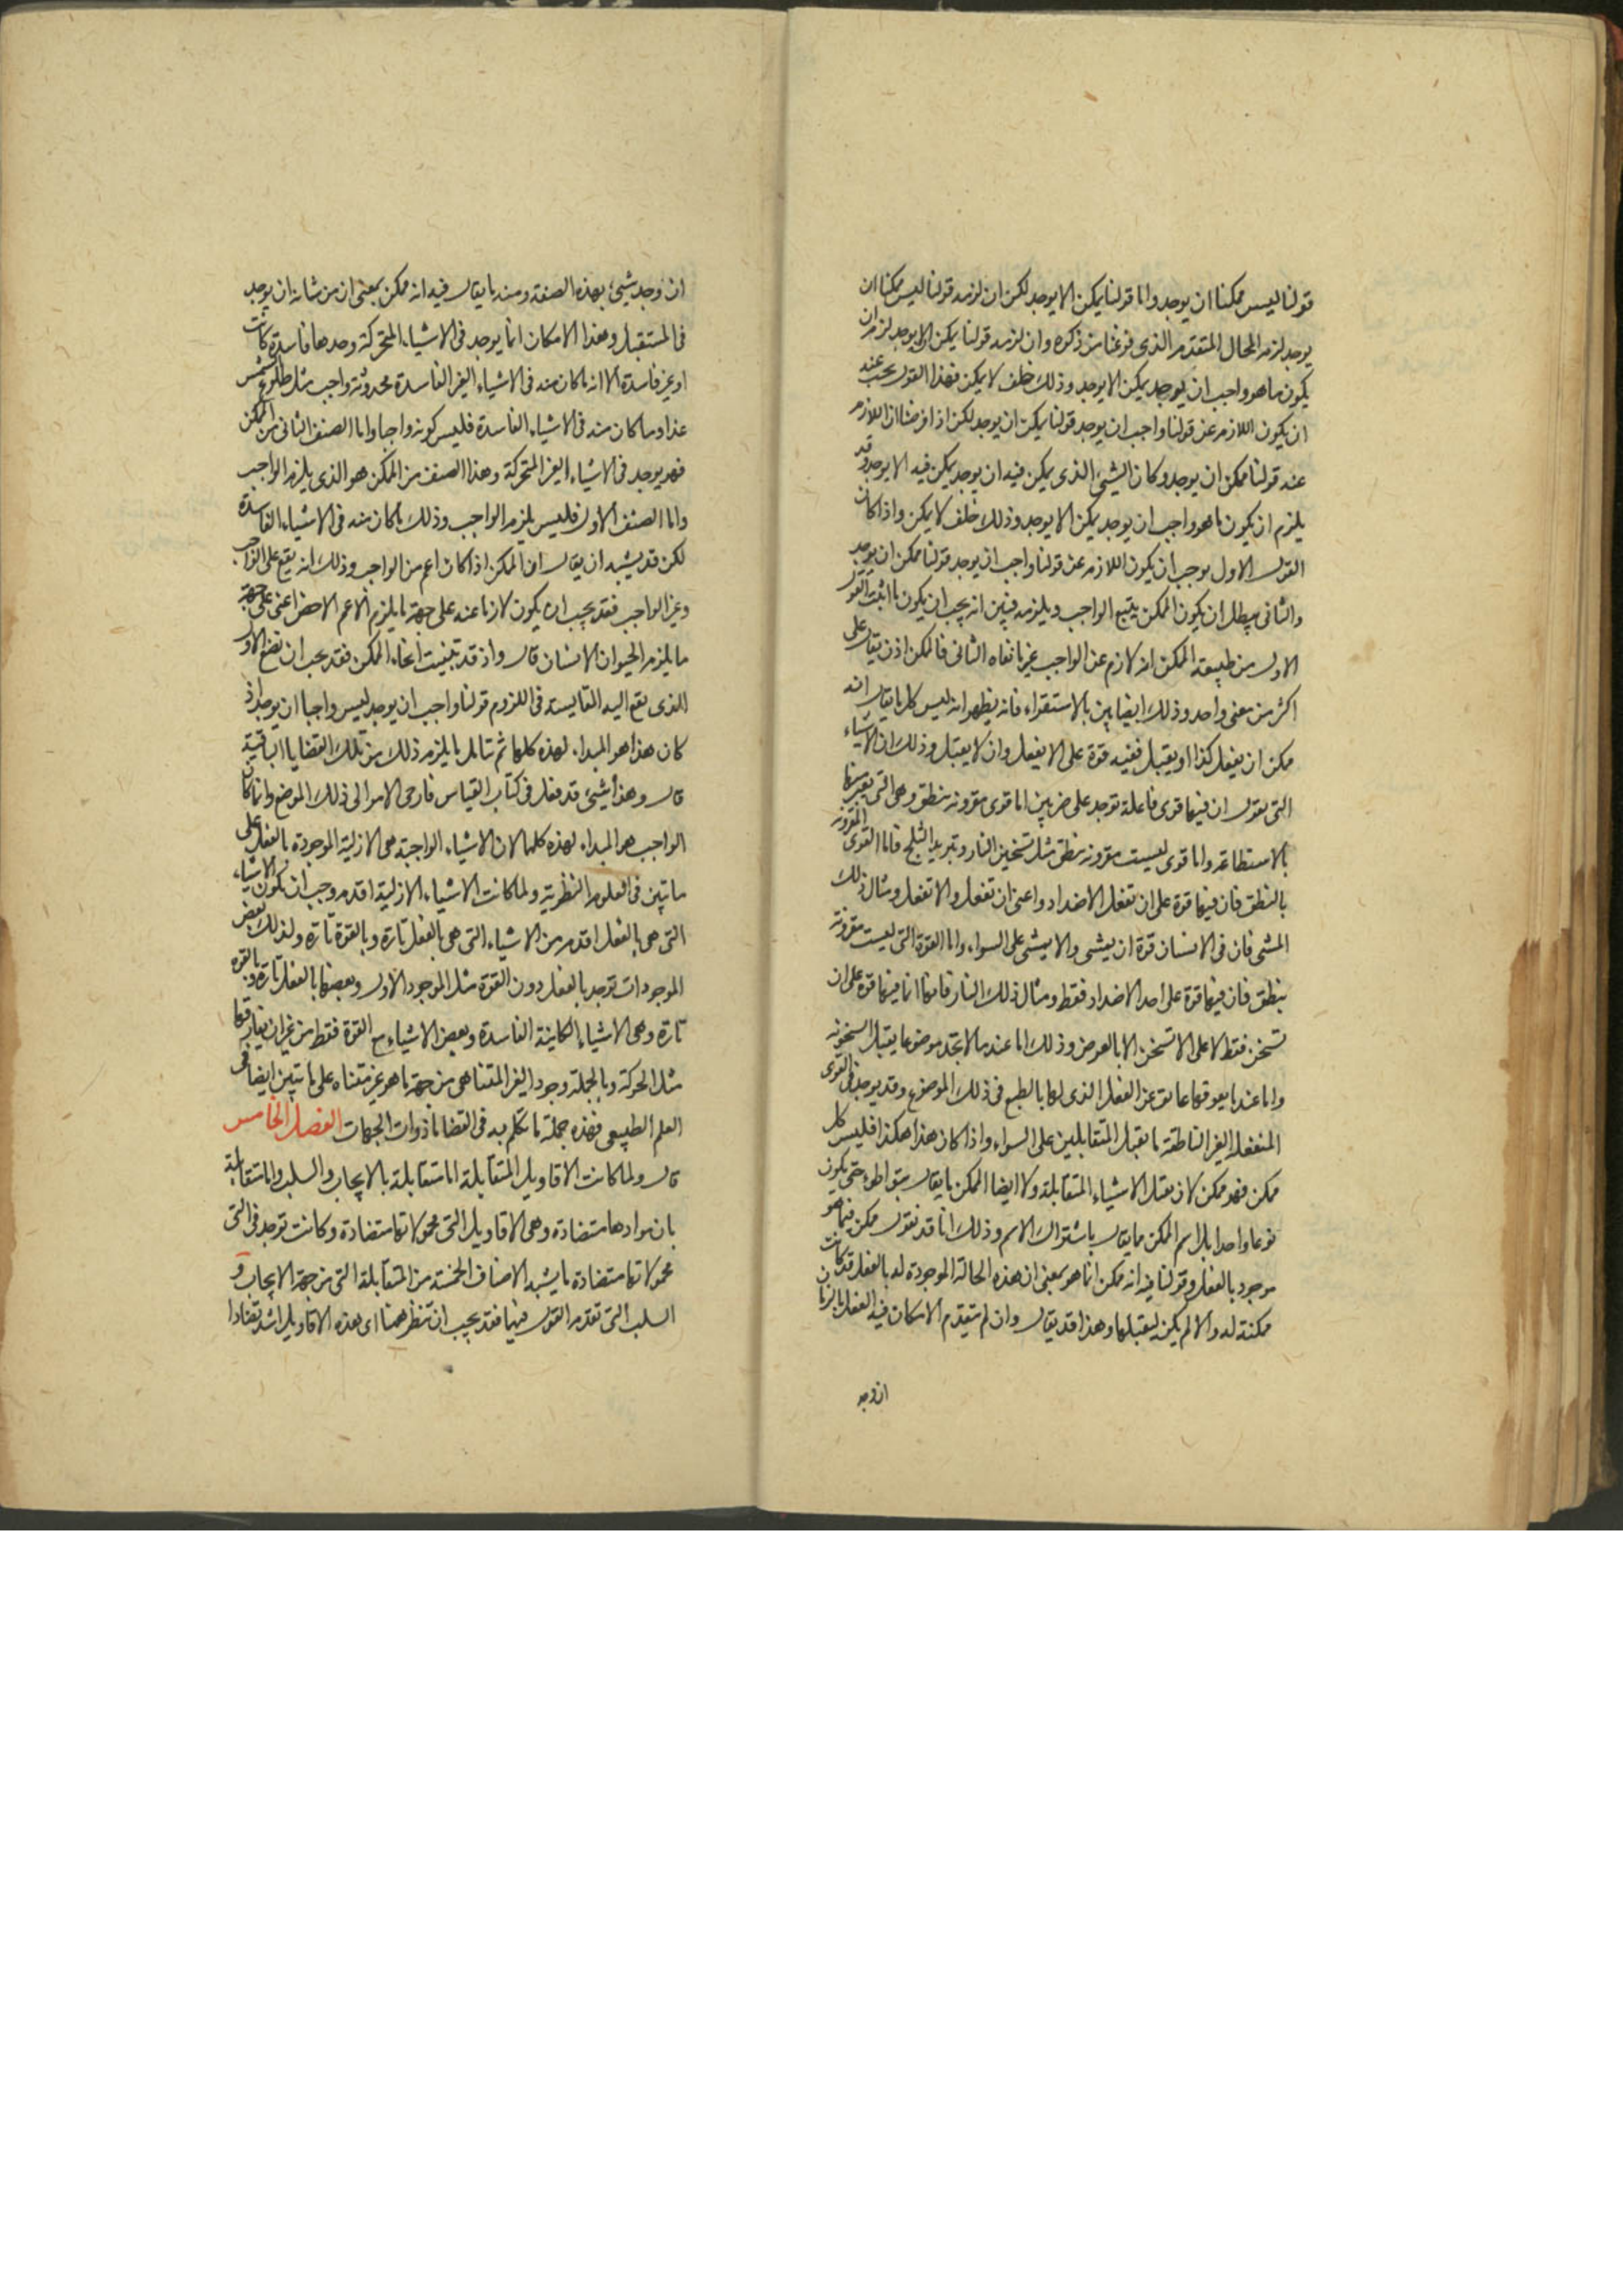 قولنا ليس ممكنا ان يوجد واما قولنا يمكن الا يوجد لكن ان لزمه قولنا ليس ممكنا ان
يوجد لزمه المحال المتقدم الذى فرغنا من ذكره وان لزمه قولنا يمكن الا يوجد لزم ان
يكون ما هو واجب ان يوجد يمكن الا يوجد وذلك خلف لا يمكن فهذا القول يجب عنه
ان يكون اللازم عن قولنا واجب ان يوجد قولنا يمكن ان يوجد لكن اذا فرضنا ان اللازم
عنه قولنا ممكن ان يوجد وكان الشيئ الذى يمكن فيه ان يوجد يمكن فيه الا يوجد وقد
يلزم ان يكون ما هو واجب ان يوجد يمكن الا يوجد وذلك خلف لا يمكن واذا كان
القول الاول يوجب ان يكون اللازم عن قولنا واجب ان يوجد قولنا ممكن ان يوجد
والثانى يبطل ان يكون الممكن يتبع الواجب ويلزمه فبين انه يجب ان يكون ما اثبت القول
الاول من طبيعة الممكن انه لازم عن الواجب غير ما نفاه الثانى فالممكن اذن يقال على
اكثر من معنى واحد وذلك ايضا بين بالاستقراء فانه يظهر انه ليس كل ما يقال انه
ممكن ان يفعل كذا او يقبل ففيه قوة على الا يفعل وان لا يقبل وذلك ان الاشياء
التى نقول ان فيها قوى فاعلة توجد على ضربين اما قوى مقرونة بنطق وهى التى يعبر عنها
بالاستطاعة واما قوى ليست مقرونة بنطق مثل تسخين النار وتبريد الثلج فاما القوى المقرونة
بالنطق فان فيها قوة على ان تفعل الاضداد واعنى ان تفعل والا تفعل ومثال ذلك
المشى فان فى الانسان قوة ان يمشى والا يمشى على السواء واما القوة التى ليست مقرونة
بنطق فان فيها قوة على احد الاضداد فقط ومثال ذلك النار فانها انما فيها قوة على ان
تسخن فقط لا على الا تسخن الا بالعرض وذلك اما عند ما لا تجد موضوعا يقبل السخونة
واما عند ما يعوقها عائق عن الفعل الذى لها بالطبع فى ذلك الموضوع وقد يوجد فى القوى
المنفعلة الغير الناطقة ما يقبل المتقابلين على السواء واذا كان هذا هكذا فليس كل
ممكن فهو ممكن لان يقبل الاشياء المتقابلة ولا ايضا الممكن ما يقال بتواطؤ حتى يكون
نوعا واحدا بل اسم الممكن مما يقال باشتراك الاسم وذلك انا قد نقول ممكن فيما هو
موجود بالفعل وقولنا فيه انه ممكن انما هو بمعنى ان هذه الحالة الموجودة له بالفعل قد كانت
ممكنة له والا لم يكن ليقبلها وهذا قد يقال وان لم يتقدم الامكان فيه الفعل بالزمان
ان وجد
ان وجد شيئ بهذه الصفة ومنه ما يقال فيه انه ممكن بمعنى ان من شانه ان يوجد
فى المستقبل وهذا الامكان انما يوجد فى الاشياء المتحركة وحدها فاسدة كانت
او غير فاسدة الا انه ما كان منه فى الاشياء الغير الفاسدة فحدوثه واجب مثل طلوع الشمس
غدا وما كان منه فى الاشياء الفاسدة فليس كونه واجبا واما الصنف الثانى من الممكن
فهو يوجد فى الاشياء الغير المتحركة وهذا الصنف من الممكن هو الذى يلزم الواجب
واما الصنف الاول فليس يلزم الواجب وذلك ما كان منه فى الاشياء الفاسدة
لكن قد يشبه ان يقال ان الممكن اذا كان اعم من الواجب وذلك انه يقع على الواجب
وغير الواجب فقد يجب ان يكون لازما عنه على جهة ما يلزم الاعم الاخص اعنى على جهة
ما يلزم الحيوان الانسان قال واذ قد تبينت انحاء الممكن فقد يجب ان نضع الاول
الذى نقع اليه المقايسة فى اللزوم قولنا واجب ان يوجد ليس واجبا ان يوجد اذ
كان هذا هو المبداء لهذه كلها ثم نتامل ما يلزم ذلك من تلك القضايا الباقية
قال وهذا شيئ قد فعل فى كتاب القياس فارجى الامر الى ذلك الموضع وانما كان
الواجب هو المبداء لهذه كلها لان الاشياء الواجبة هى الازلية الموجودة بالفعل على
ما تبين فى العلوم النظرية ولما كانت الاشياء الازلية اقدم وجب ان تكون الاشياء
التى هى بالفعل اقدم من الاشياء التى هى بالفعل تارة وبالقوة تارة ولذلك بعض
الموجودات توجد بالفعل دون القوة مثل الموجود الاول وبعضها بالفعل تارة وبالقوة
تارة وهى الاشياء الكاينة الفاسدة وبعض الاشياء مع القوة فقط من غير ان يفارقها
مثل الحركة وبالجملة وجود الغير المتناهى من جهة ما هو غير متناه على ما تبين ايضا فى
العلم الطبيعى فهذه جملة ما تكلم به فى القضايا ذوات الجهات الفصل الخامس
قال ولما كانت الاقاويل المتقابلة اما متقابلة بالايجاب والسلب واما متقابلة
بان موادها متضادة وهى الاقاويل التى محمولاتها متضادة وكانت توجد فى التى
محمولاتها متضادة ما يشبه الاصناف الخمسة من المتقابلة التى من جهة الايجاب و
السلب التى تقدم القول فيها فقد يجب ان ننظر ههنا اى هذه الاقاويل اشد تضادا